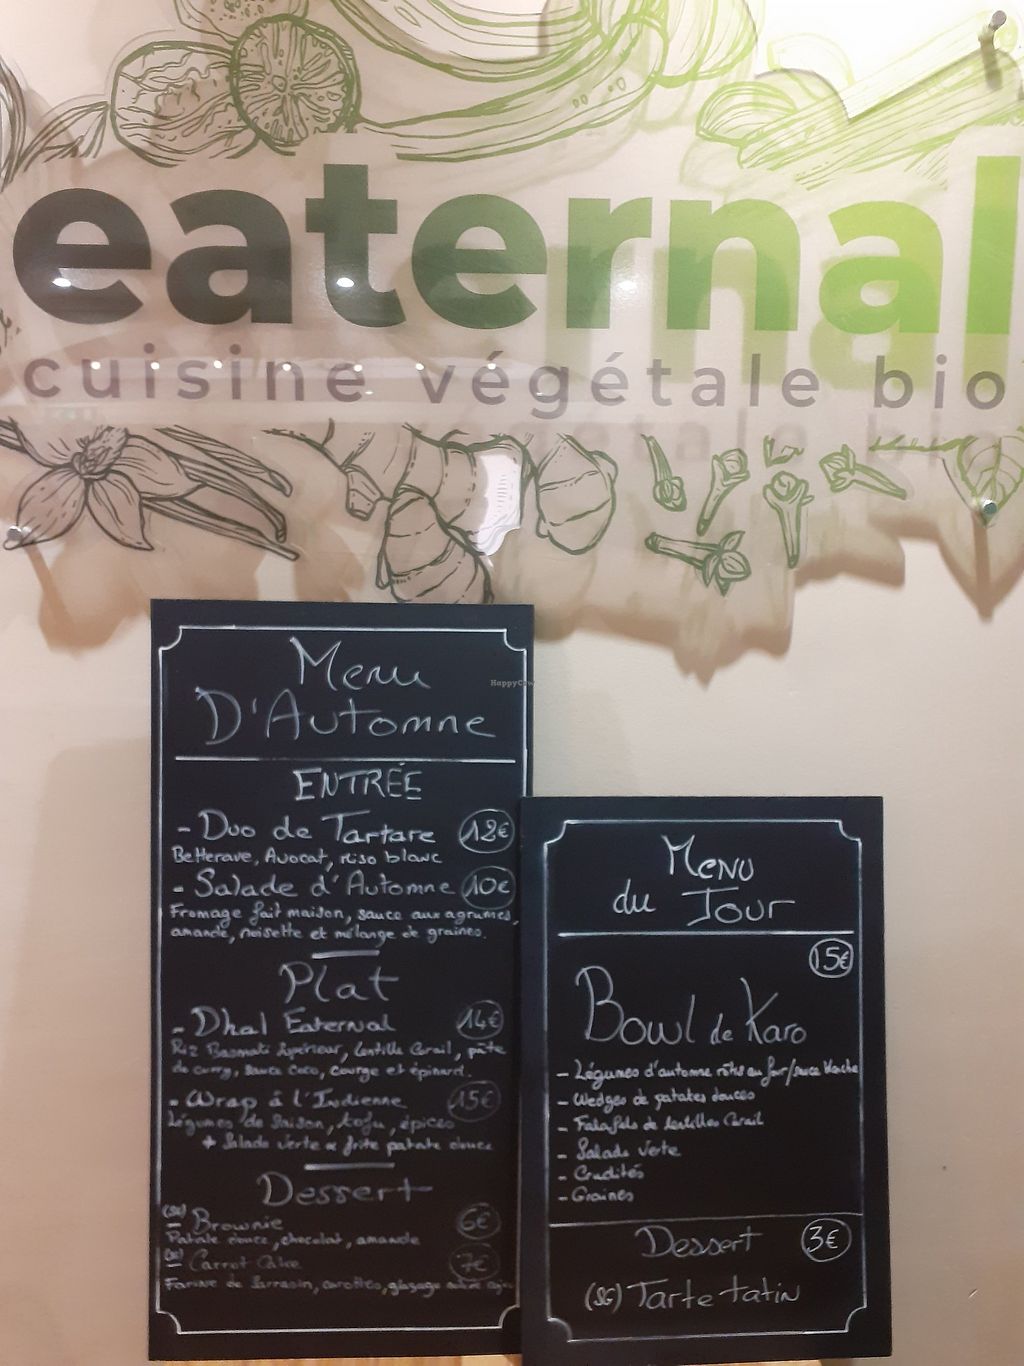 eaternal
cuisine végétale bio
HappyCow
Menu
D'Automne
ENTRÉE
- Duo de Tartare 12€
Betterave, Avocat, miso blanc
- Salade d'Automne 10€
Fromage fait maison, sauce aux agrumes,
amande, noisette et mélange de graines.
Plat
- Dhal Eaternal 14€
Riz Basmati Supérieur, lentille Corail, pâte
de curry, sauce coco, courge et épinard.
- Wrap à l'Indienne 15€
Légumes de Saison, tofu, épices
+ Salade verte & frite patate douce
Dessert
(SG)
- Brownie 6€
Patate douce, chocolat, amande
(SG)
- Carrot Cake 7€
Farine de Sarrasin, carottes, glaçage
Menu
du Jour
15€
Bowl de Karo
- Légumes d'automne rôtis au four/sauce blanche
- Wedges de patates douces
- Falafels de lentilles Corail
- Salade verte
- Crudités
- Graines
Dessert 3€
(SG) Tarte tatin